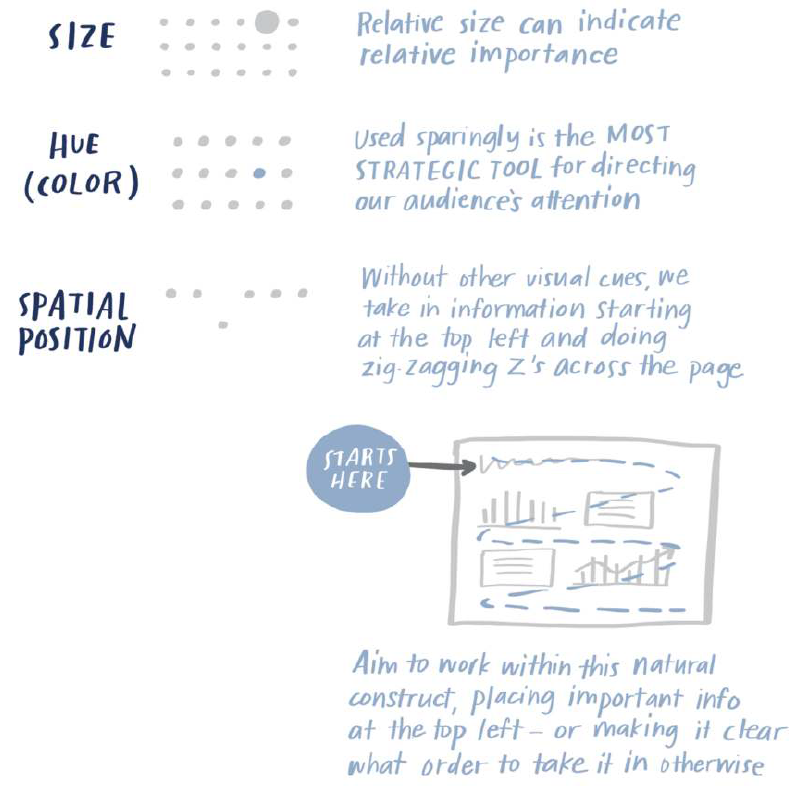 SIZE
Relative size can indicate
relative importance
HUE
(COLOR)
Used sparingly is the MOST
STRATEGIC TOOL for directing
our audience's attention
SPATIAL
POSITION
Without other visual cues, we
take in information starting
at the top left and doing
zig-zagging Z's across the page
STARTS
HERE
Aim to work within this natural
construct, placing important info
at the top left – or making it clear
what order to take it in otherwise